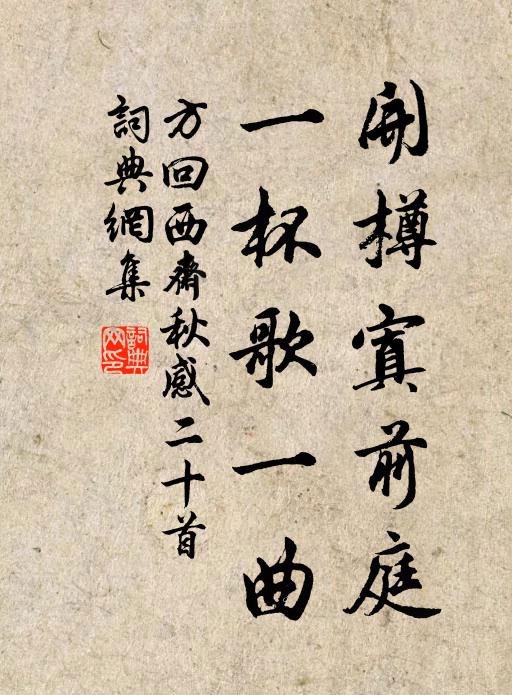 開樽寘前庭
一杯歌一曲
方回西齋秋感二十首
詞典網集
詞典网印